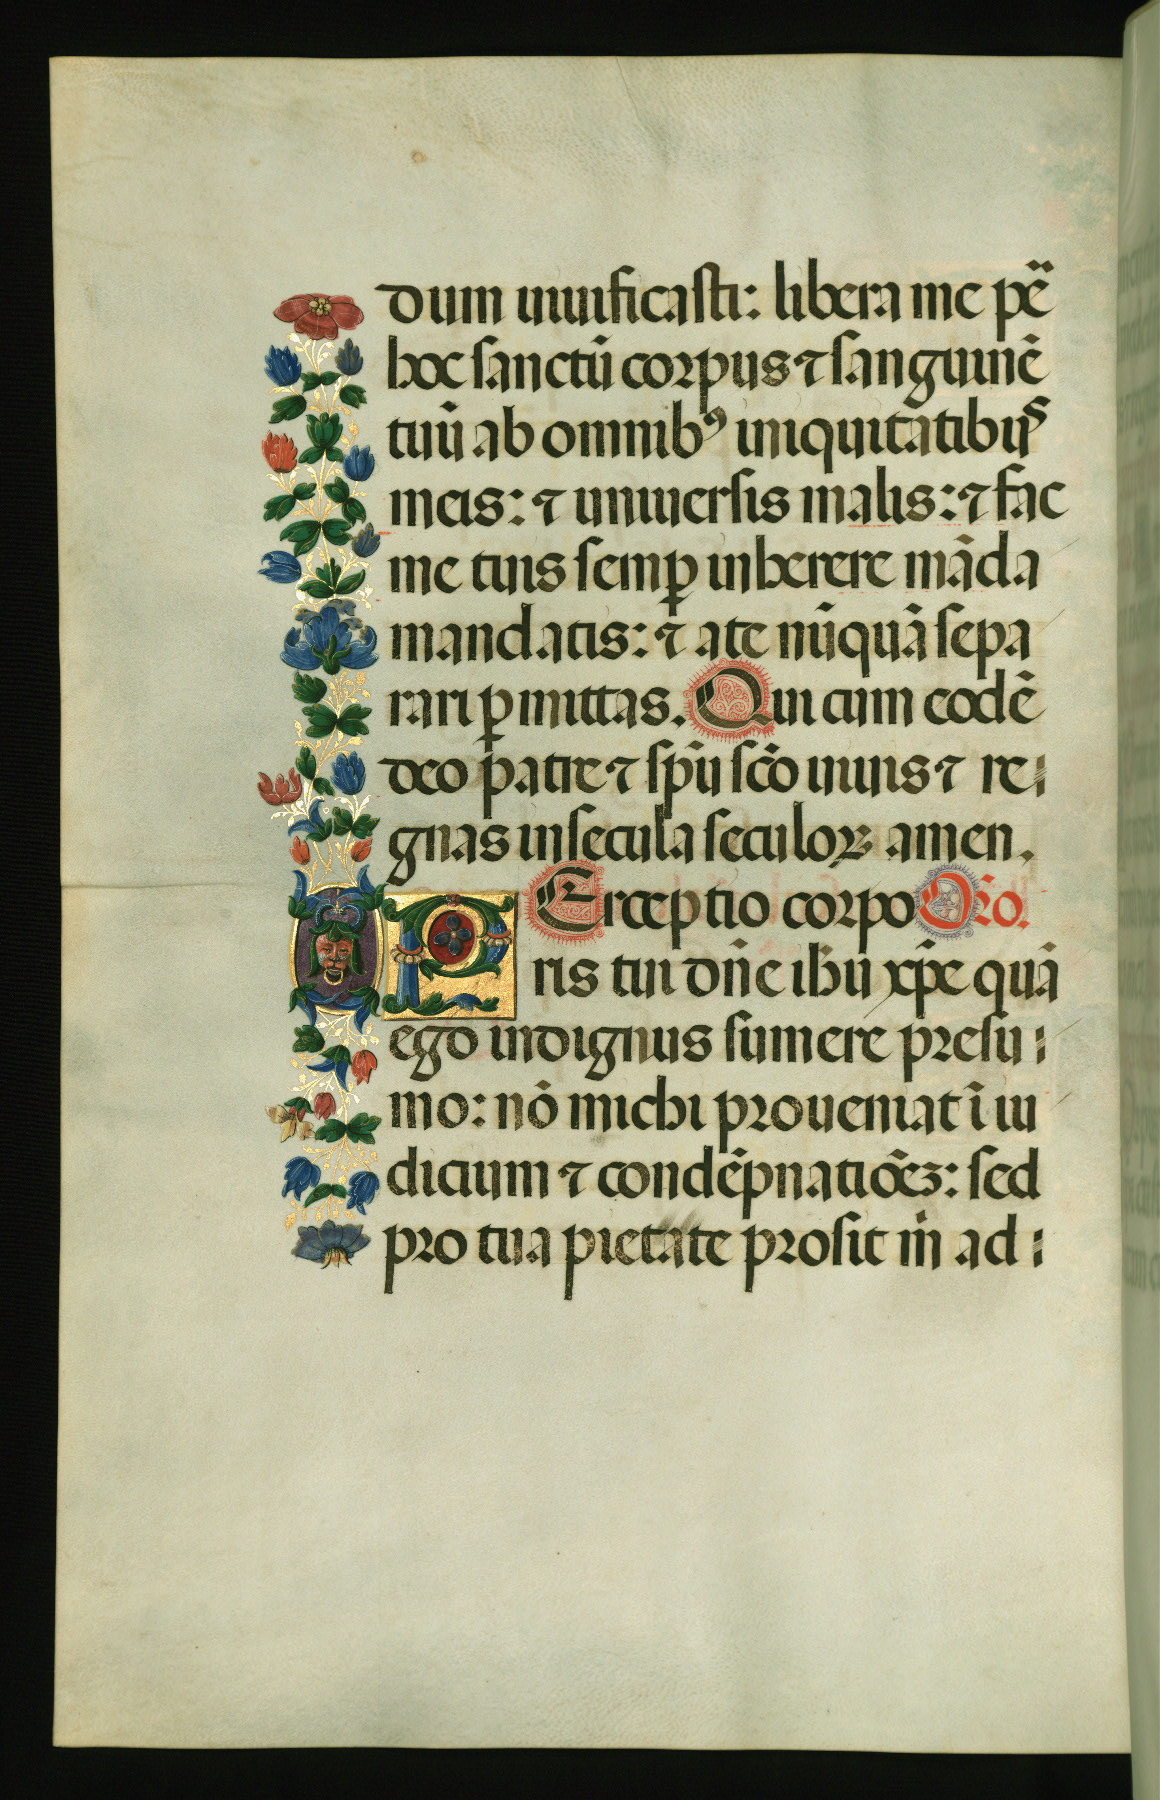 dum uiuificasti: libera me pẽ
hoc sanctū corpus ⁊ sanguinē
tuū ab omnibꝰ iniquitatibus
meis: ⁊ uniuersis malis: ⁊ fac
me tuis semꝑ inherere māda
mandatis: ⁊ ate nūquā sepa
rari ꝑmittas. Qui cum eodē
deo patre ⁊ spū scō uiuis ⁊ re
gnas in secula seculoꝝ amen.
PErceptio corpo Oro.
ris tui dñe ihū xp̄e quā
ego indignus sumere presu
mo: nō michi proueniat ī iu
dicium ⁊ condēpnatiōeꝫ: sed
pro tua pietate prosit m̄ ad